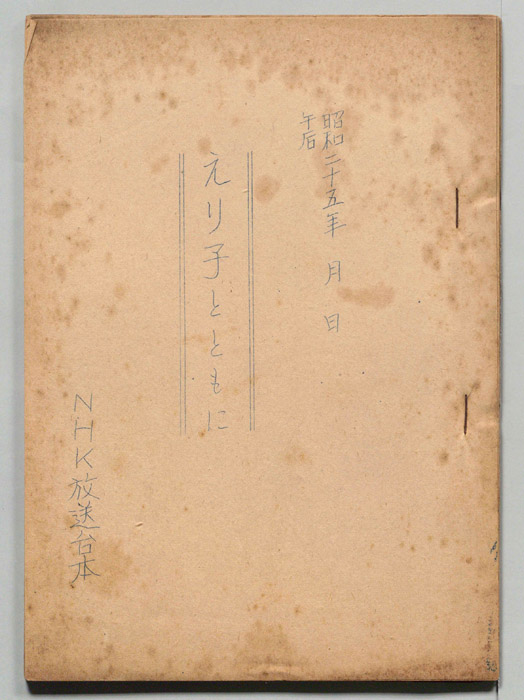 昭和二十五年 月 日
午后
えり子とともに
NHK放送台本